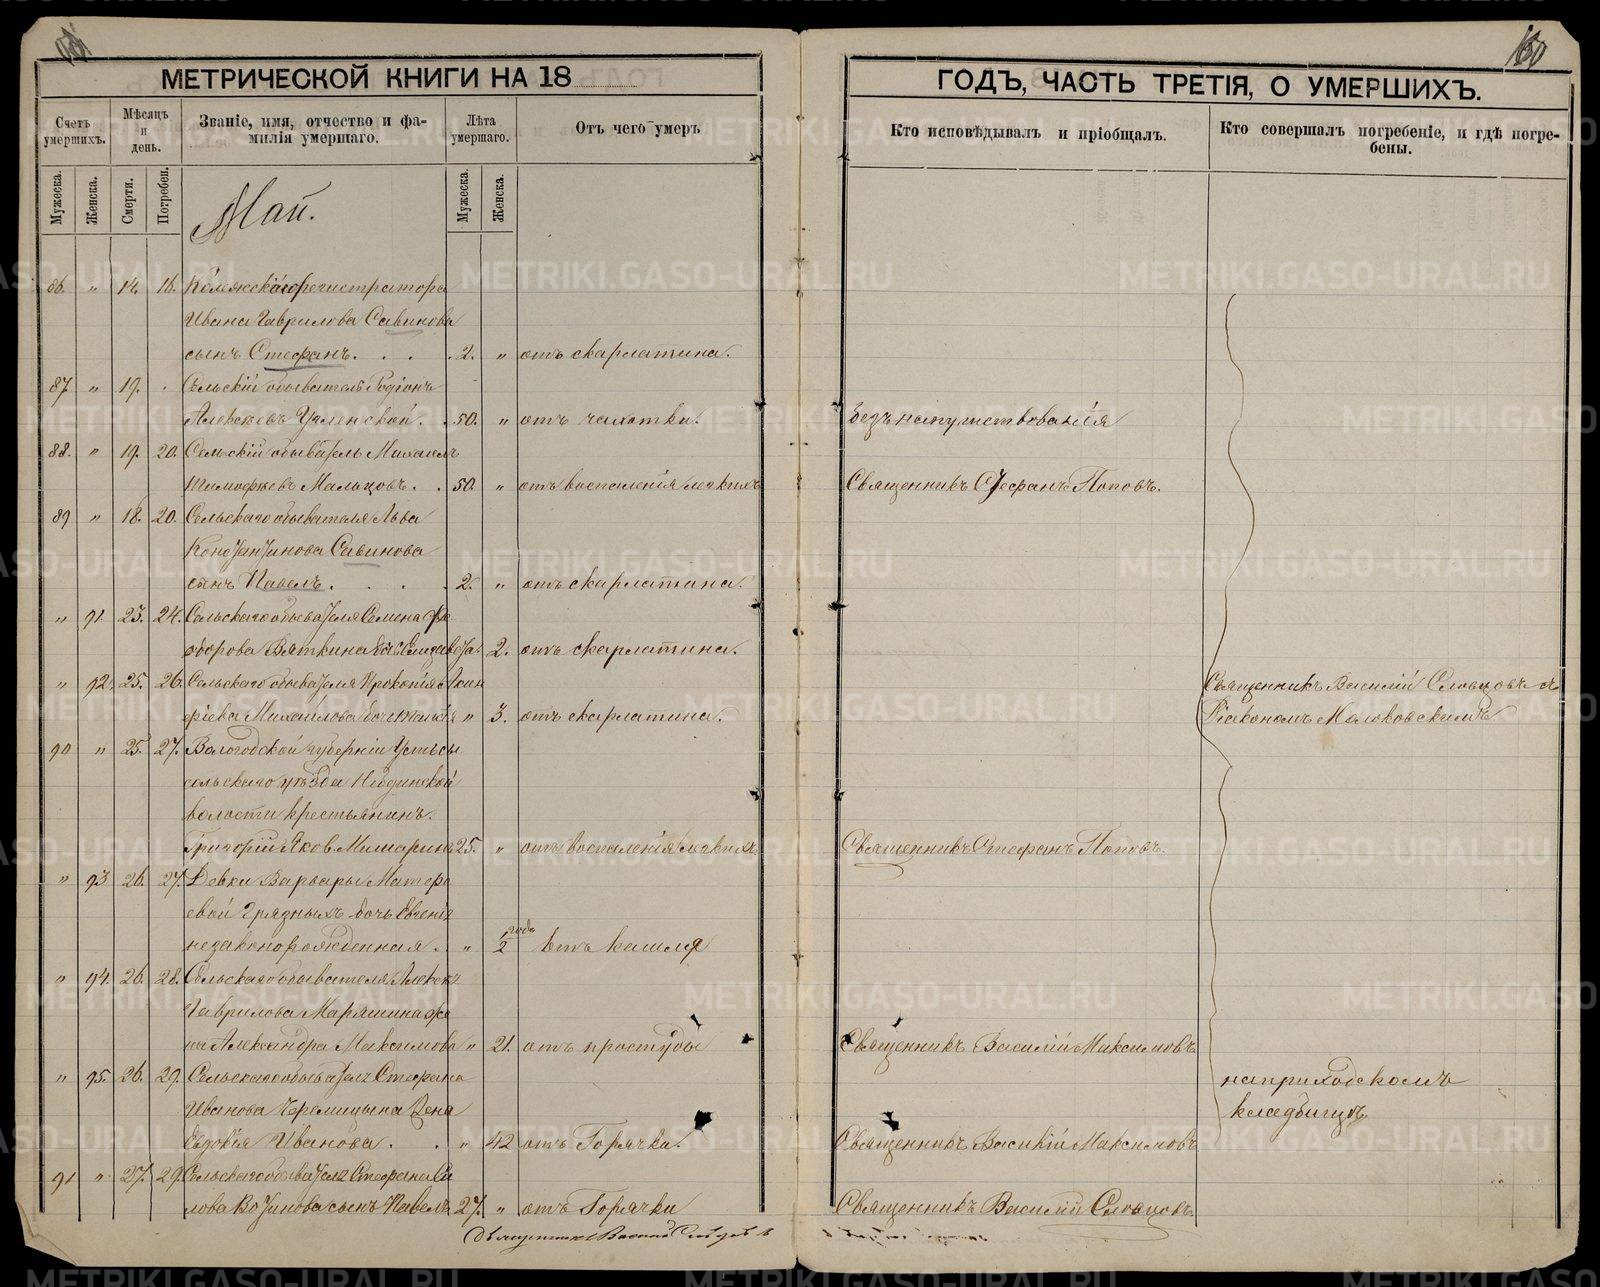 160
МЕТРИЧЕСКОЙ КНИГИ НА 18
ГОДЪ, ЧАСТЬ ТРЕТІЯ, О УМЕРШИХЪ.
Счетъ умершихъ.
Мѣсяцъ и день.
Званіе, имя, отчество и фамилія умершаго.
Лѣта умершаго.
Отъ чего умеръ
Кто исповѣдывалъ и пріобщалъ.
Кто совершалъ погребеніе, и гдѣ погребены.
Мужеска. Женска. Смерти. Погребен. Мужеска. Женска.
Май.
86. " 14. 16. Колежскаго регистратора
Ивана Гаврилова Савинова
сынъ Стефанъ. . . . 2. " отъ скарлатина.
87 " 19. . Сельскій обыватель Родіонъ
Алексѣевъ Усленской. . 50. " отъ чахотки. Безъ напутствованія
88. " 19. 20. Сельскій обыватель Михаилъ
Тимофѣевъ Мальцовъ. . 50. " отъ воспаленія легкихъ Священникъ Стефанъ Поповъ.
89 " 18. 20. Сельскаго обывателя Льва
Константинова Савинова
сынъ Павелъ . . . . 2. " отъ скарлатина.
" 91. 23. 24. Сельскаго обывателя Семена Ѳе
дорова Вяткина дочь Елизавета. 2. отъ скарлатина.
" 92. 25. 26. Сельскаго обывателя Прокопія Акин
фіева Михайлова дочь " 3. отъ скарлатина.
Священникъ Василій Словцовъ съ
Діакономъ Молоковскимъ
90 " 25. 27. Вологодской губерніи Устьсы
сольскаго уѣзда Нёбдинской
волости крестьянинъ.
Григорій Яков. Мишаринъ 25. " отъ воспаленія легкихъ Священникъ Стефанъ Поповъ.
" 93 26. 27. Девки Варвары Матфе
евой Грязныхъ дочь Евгенія
незаконорожденная. . " 1/2 годъ отъ кашля
" 94. 26. 28. Сельскаго обывателя Алексѣя
Гаврилова Маряшина же
на Александра Максимова " 21. отъ простуды Священникъ Василій Максимовъ
" 95. 26. 29. Сельскаго обывателя Стефана
Иванова Черемицына жена
Евдокія Иванова. . " 42 отъ Горячки. Священникъ Василій Максимовъ
на приходскомъ
кладбищѣ.
91 " 27. 29. Сельскаго обывателя Стефана Си
лова Вотинова сынъ Павелъ 27. " отъ Горячки Священникъ Василій Словцовъ.
METRIKI.GASO-URAL.RU